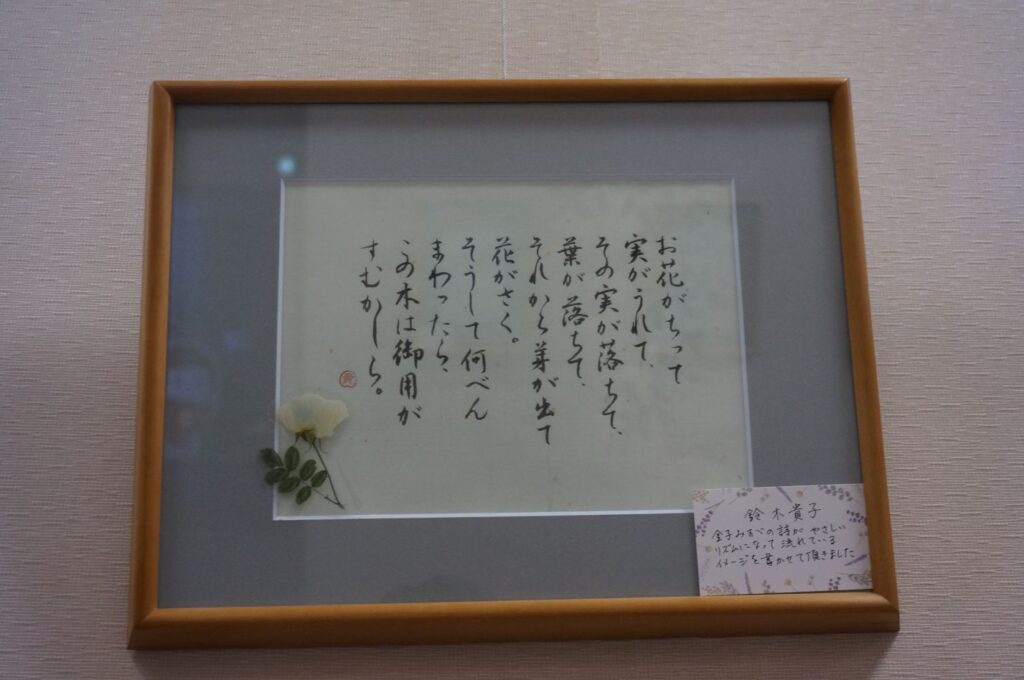 お花がちって
実がうれて、
その実が落ちて、
葉が落ちて、
それから芽が出て
花がさく。
そうして何べん
まわったら、
この木は御用が
すむかしら。
貴
鈴木貴子
金子みすゞの詩が やさしい
リズムになって 流れている
イメージを書かせて頂きました